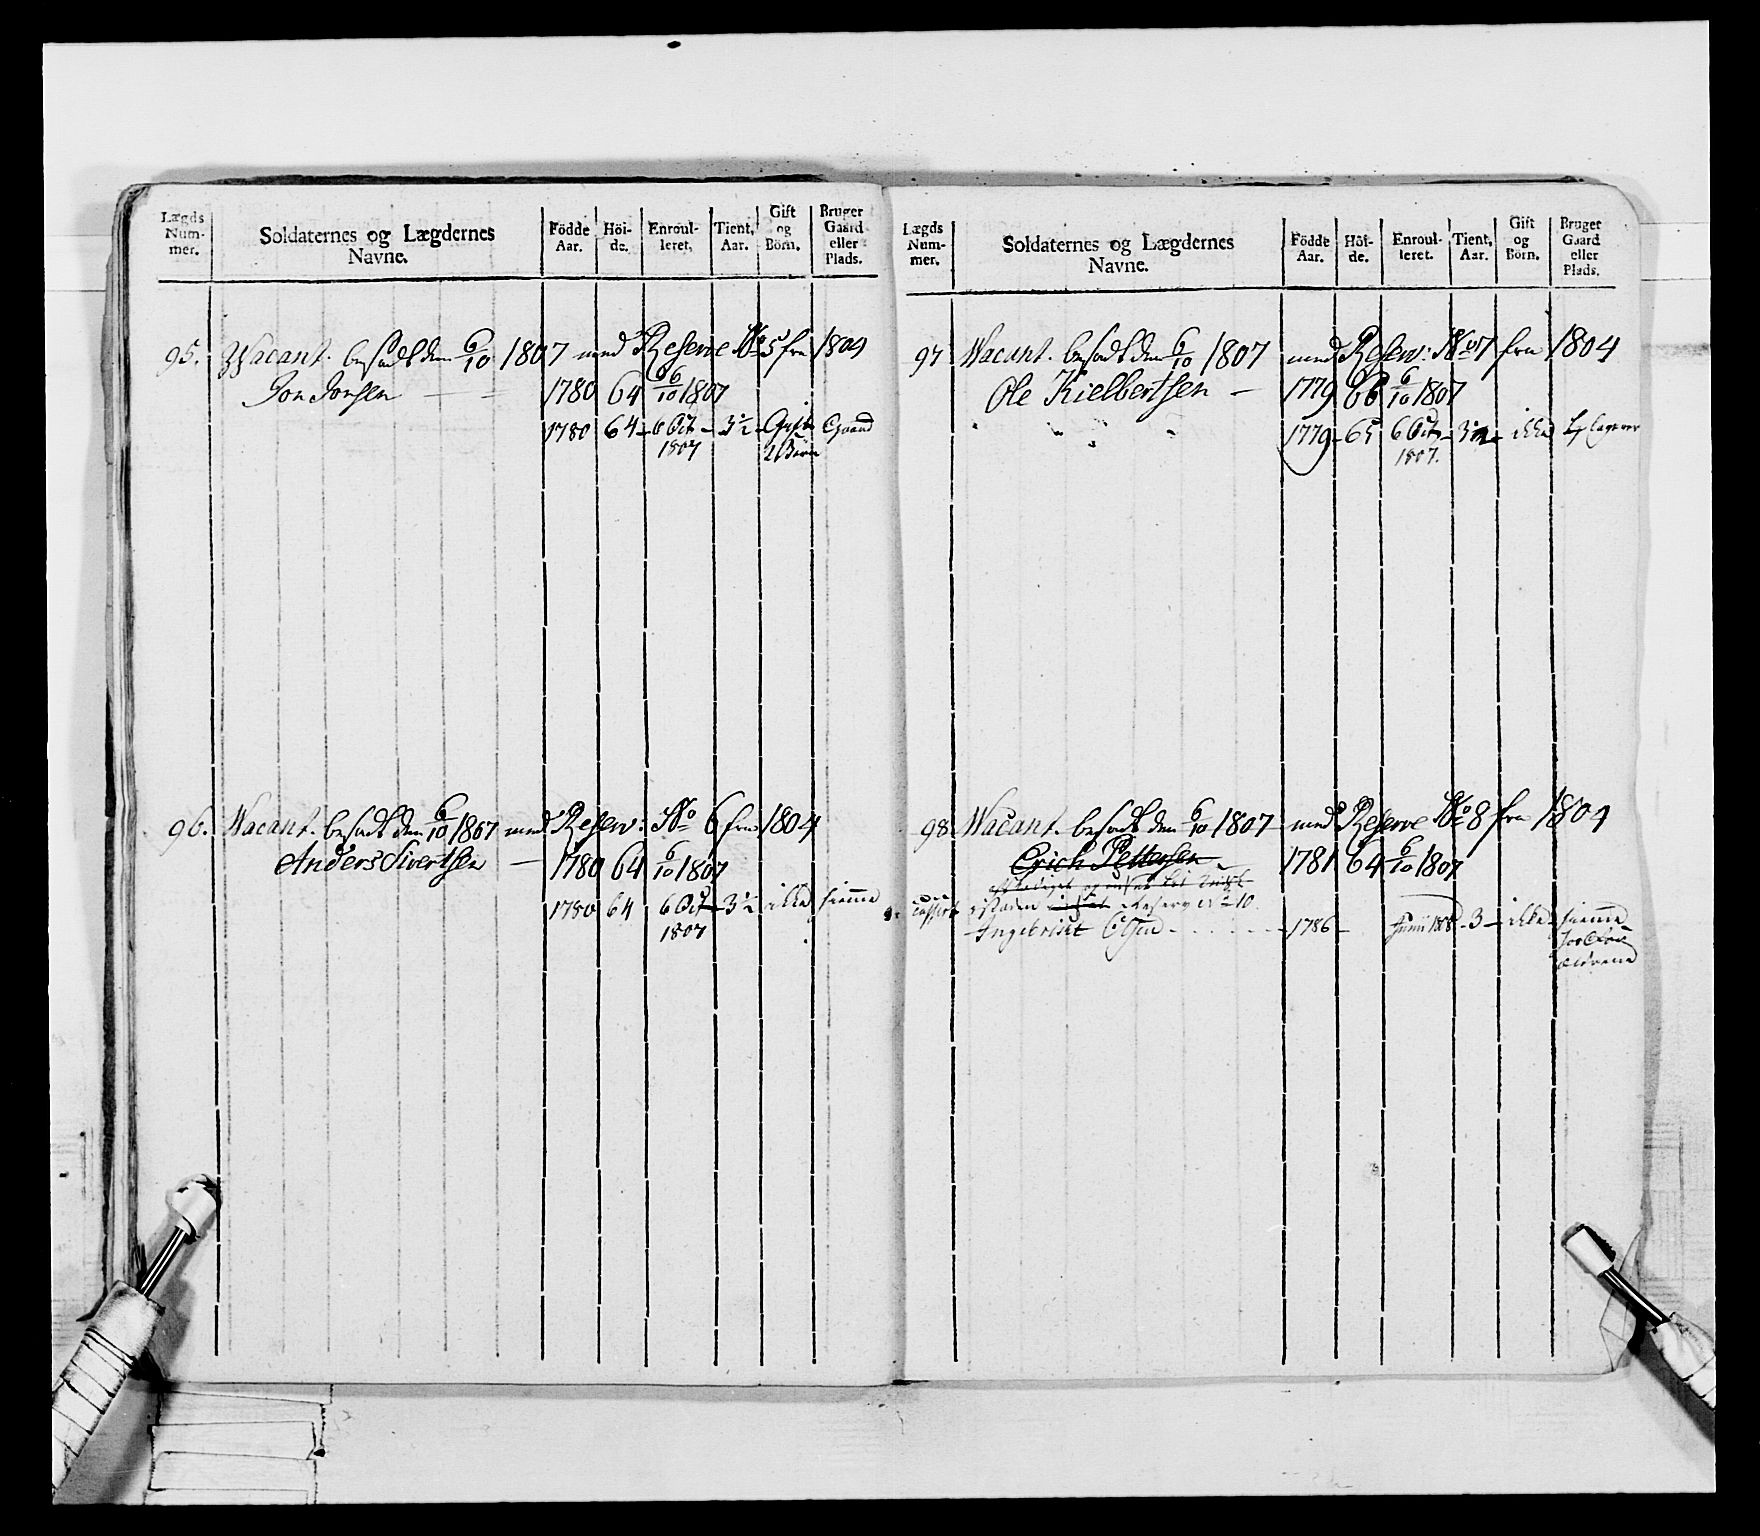 Lægds Num- mer.
Soldaternes og Lægdernes Navne.
Födde Aar.
Höi- de.
Enroul- leret.
Tient. Aar.
Gift og Börn.
Bruger Gaard eller Plads.
95. Vacant. besadt den 6/10 1807 med Reserve No 5 fra 1804
Jon Jonsen — — 1780 64 6/10 1807
1780 64 - 6 Oct - 3½ - Gift Gaard
1807 2 Børn
96. Vacant. besadt den 6/10 1807 med Reserv: No 6 fra 1804
Anders Sivertsen — 1780 64 6/10 1807
1780 64 6 Oct - 3½ - ikke hiemme
1807
Lægds Num- mer.
Soldaternes og Lægdernes Navne.
Födde Aar.
Höi- de.
Enroul- leret.
Tient. Aar.
Gift og Börn.
Bruger Gaard eller Plads.
97 Vacant. besadt den 6/10 1807 med Reserv: No 7 fra 1804
Ole Kielbertsen — 1779 66 6/10 1807
1779 - 65 6 Oct - - ikke
1807.
98. Vacant. besadt den 6/10 1807 med Reserve No 8 fra 1804
Erich Pettersen 1781 64 6/10 1807
og
Reserv No 10
Ingebrigt Olsen - - - - 1786 - Junii 1808 - 3 - ikke - hiemme